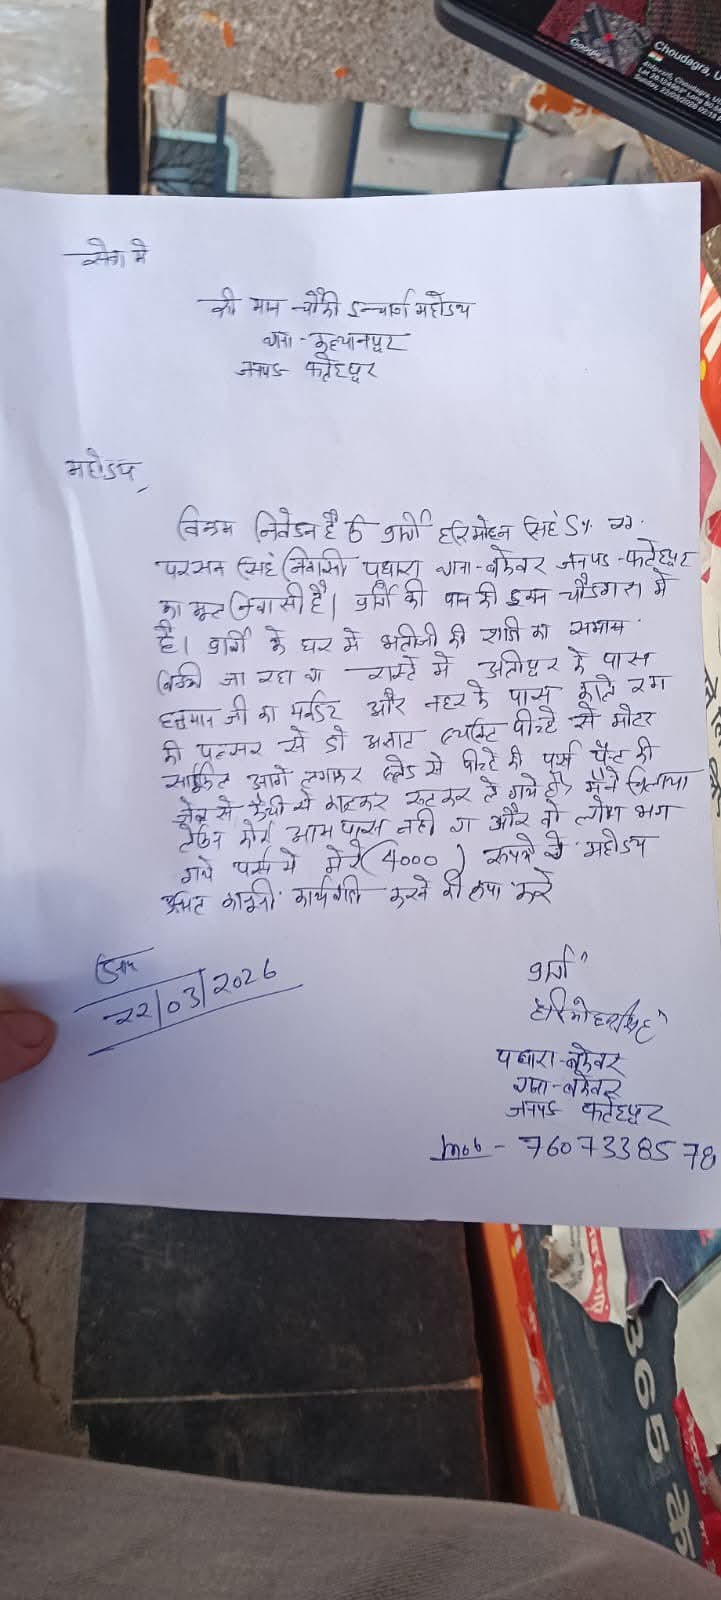 Google
Choudagra, U
सेवा मे
श्री मान चौकी इन्चार्ज महोदय
थाना - कल्यानपुर
जनपद फतेहपुर
महोदय,
विनम्र निवेदन है कि प्रार्थी हरिमोहन सिहं S/o स्व.
परसन सिहं निवासी पधारा थाना-बकेवर जनपद-फतेहपुर
का मूल निवासी है। प्रार्थी की पान की दुकान चौडगरा मे
है। प्रार्थी के घर मे भतीजी की शादि का समान
जा रहा था रास्ते मे अलीपुर के पास
हनुमान जी का मन्दिर और नहर के पास काले रंग
की पल्सर से दो अज्ञात व्यक्ति पीछे से मोटर
साईकिल आगे लगाकर ब्लेड से पीछे की पर्स पैन्ट की
जेब से कैची से काटकर लूट कर ले गये है, मैने चिलाया
लेकिन कोई आस पास नही था और वो लोग भाग
गये पर्स मे मेरे (4000) रूपये थे महोदय
उचित कानूनी कार्यवाही करने की कृपा करे
22/03/2026
प्रार्थी
हरिमोहन सिंह
पधारा-बकेवर
थाना-बकेवर
जनपद फतेहपुर
Mob - 7607338578
365